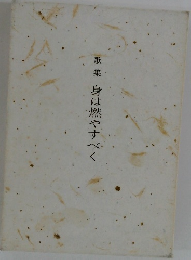 歌集 身は燃やすべく